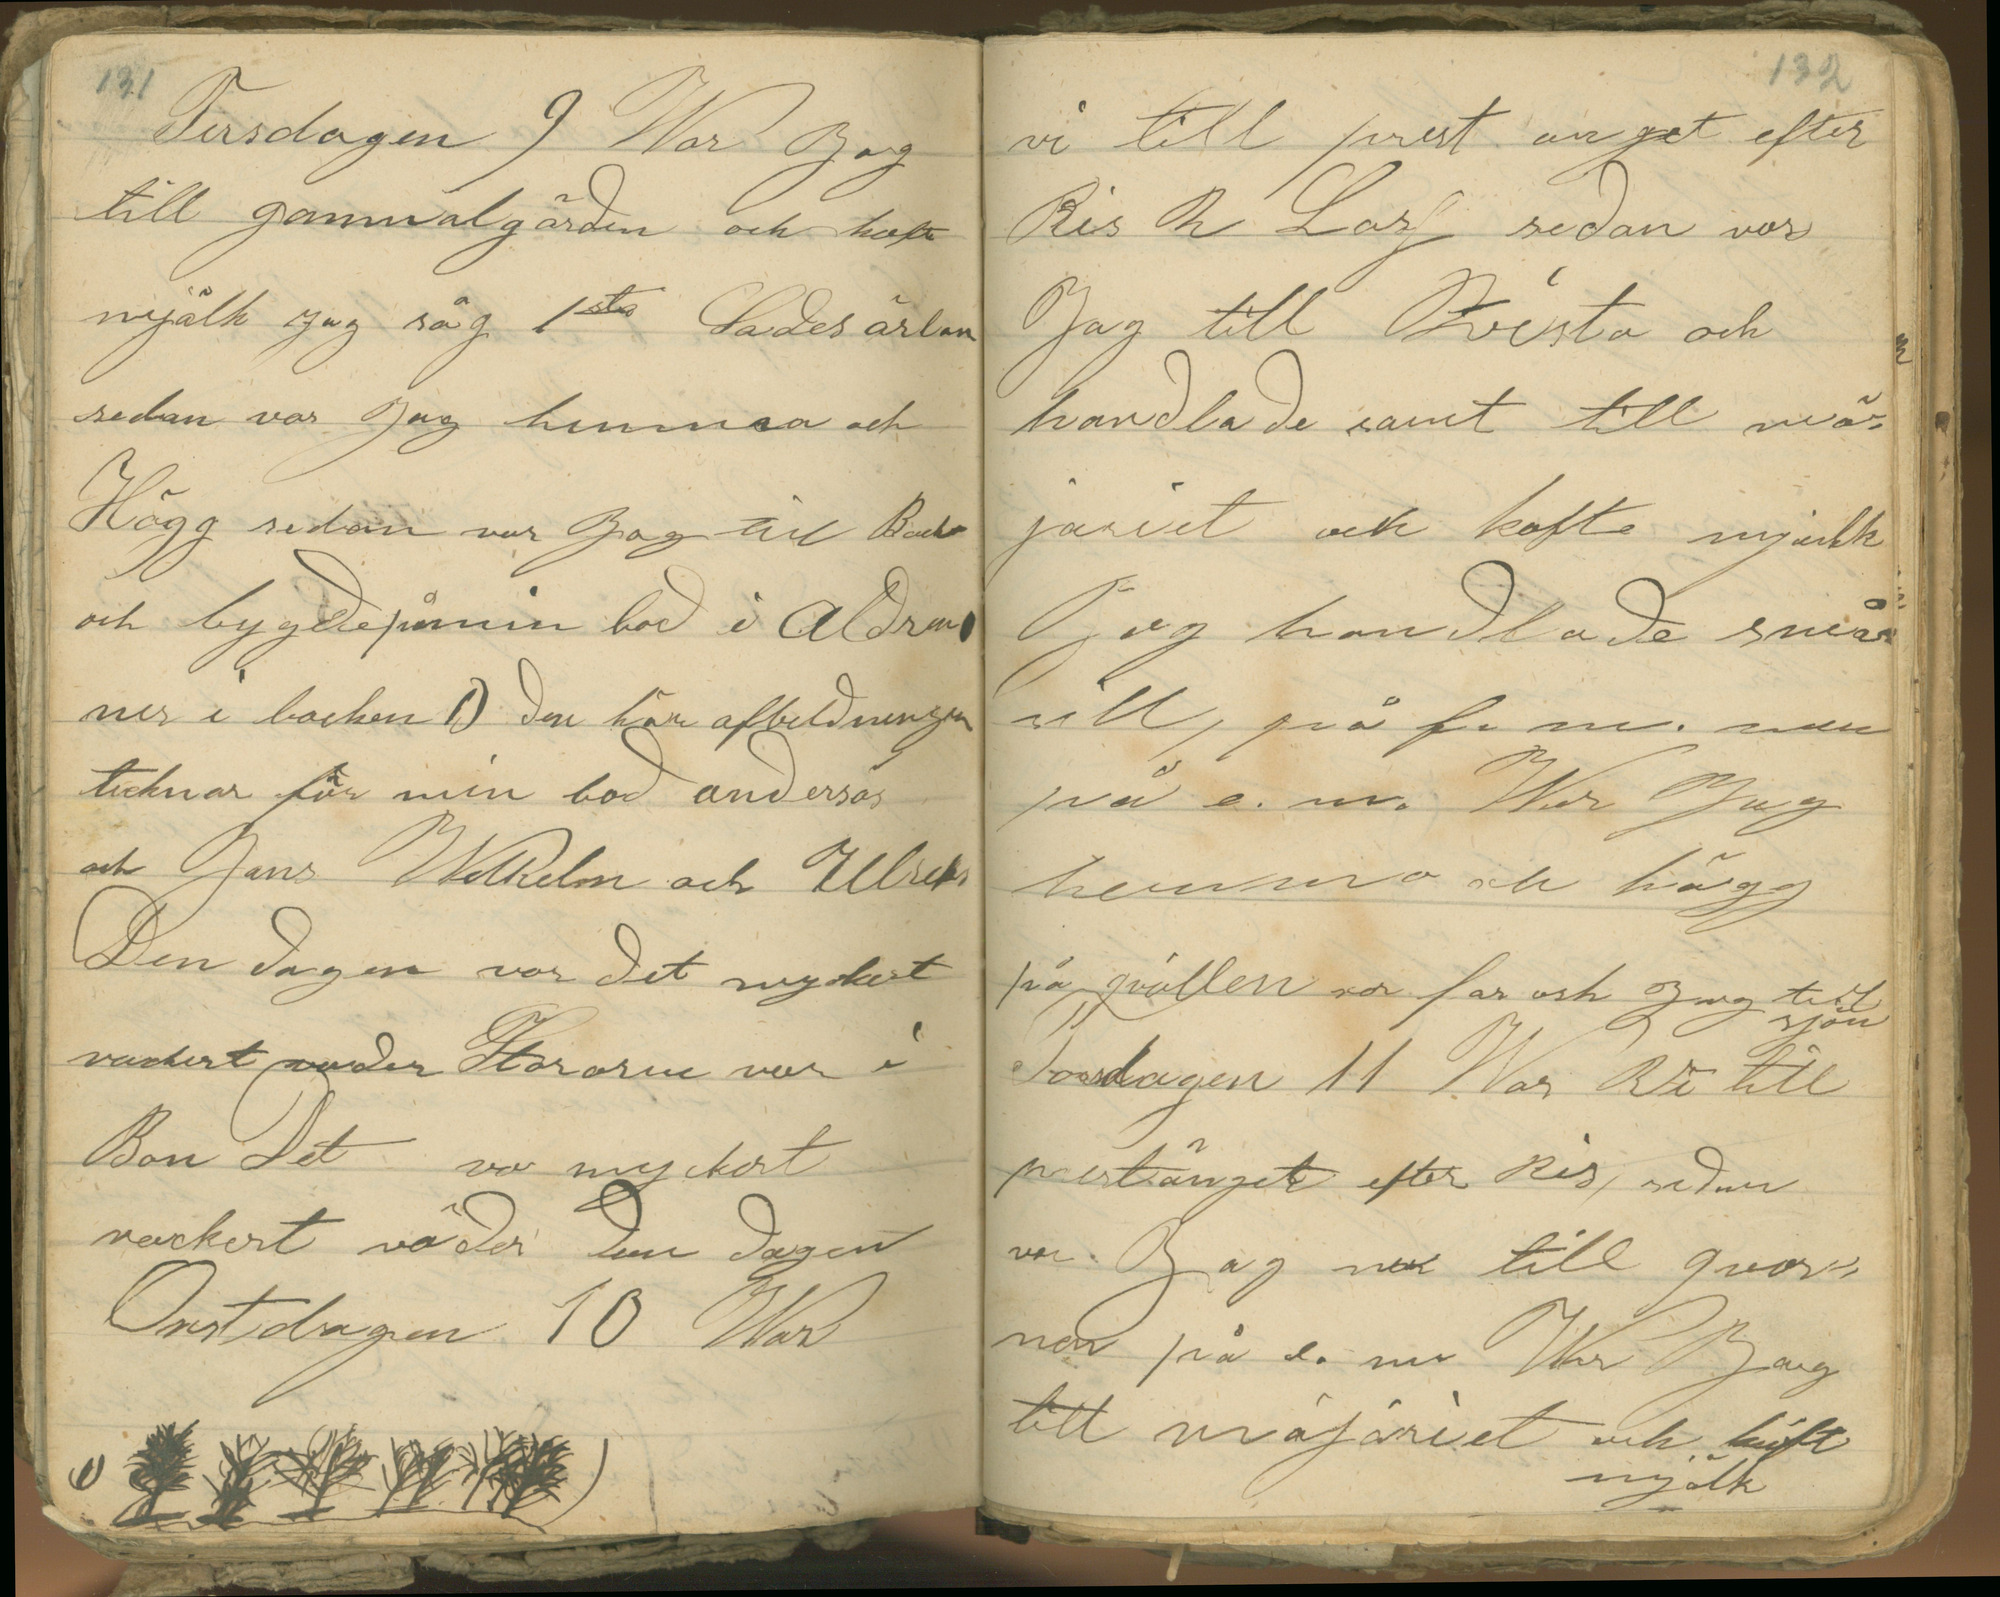 131
Tirsdagen 9 War Jag
till gammalgården och köfte
mjölk jag såg 1sta Sädesärlan
sedan var Jag hemma och
Högg sedan var Jag till Back
och bygde på min bod i Aldrun
ner i backen 1) den här afbeldningen
tecknar för min bod anders's
och Jans Wilhelm och Ulreks
Den dagen var det myckert
vackert väder Stararne var i
Bon Det va myckert
vackert väder den dagen
Onstdagen 10 War
1)
132
vi till prest anget efter
Ris R Lars sedan var
Jag till Kvista och
handlade samt till mä-
jariet och kofte mjölk
Jag handlade små
sill, på f. m. men
på e. m. War Jag
hemma och högg
på qvällen var far och Jag till
sjön
Torsdagen 11 War Vi till
prestänget efter Ris, sedan
var Jag till qvar-
nen på e. m War Jag
till mäjäriet och köft
mjölk